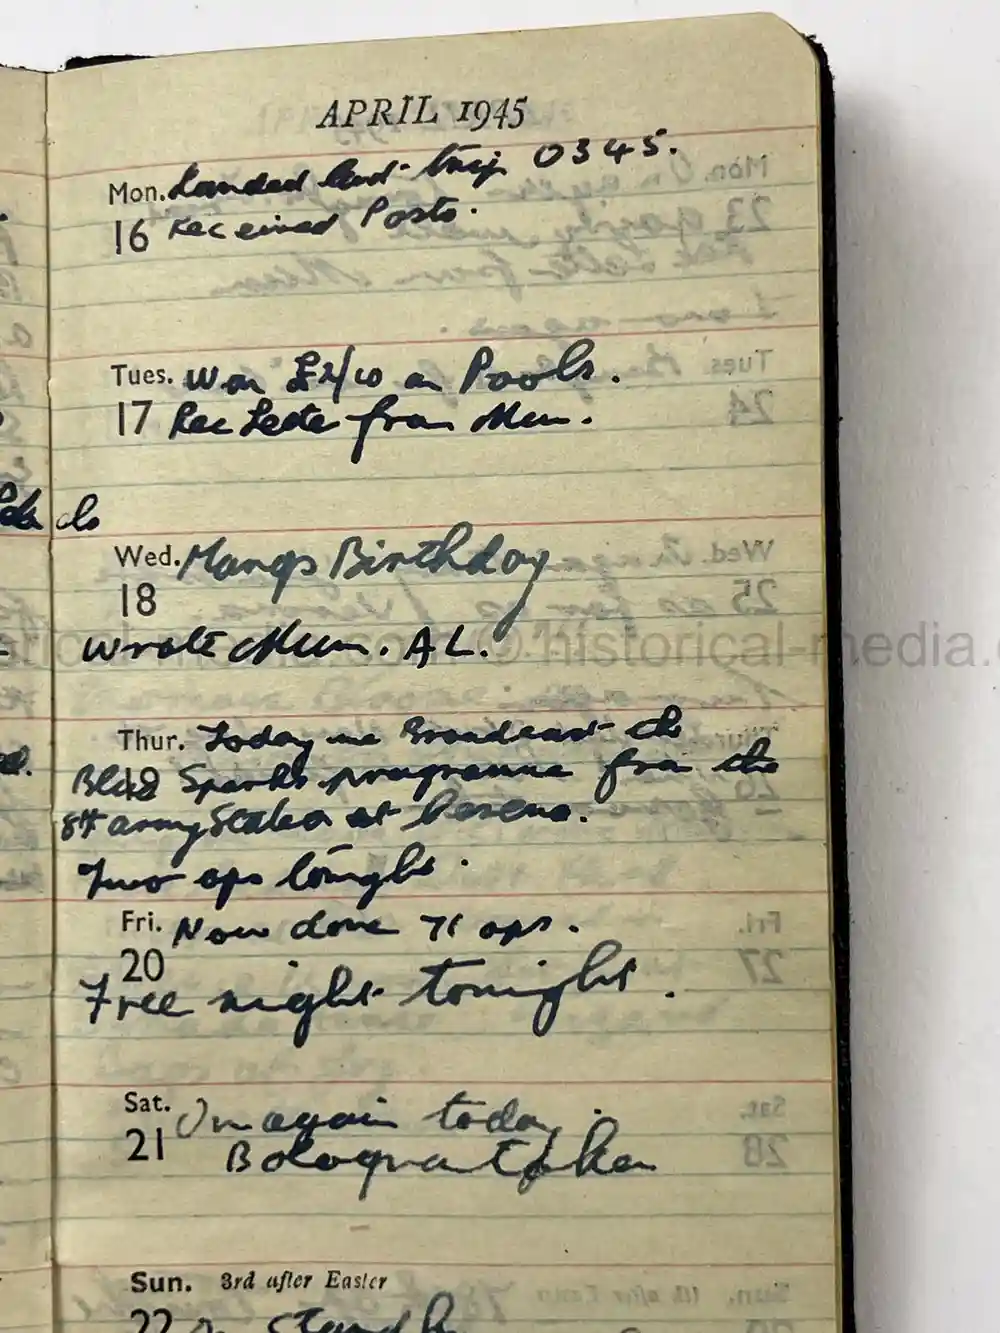 APRIL 1945
Mon. Landed last trip 0345.
16 Received Posts.
Tues. Won £2/10 on Pools.
17 Rec Letter from Mum.
Wed. Birthday
18
Wrote Mum. A L.
Thur. Today we Broadcast the
19 Sparks programme from the
8th army Station at Cesena.
Two ops tonight.
Fri. Now done 71 ops.
20
Free night tonight.
Sat. On again today
21 Bologna taken
Sun. 3rd after Easter
22 Stand
historical-media.